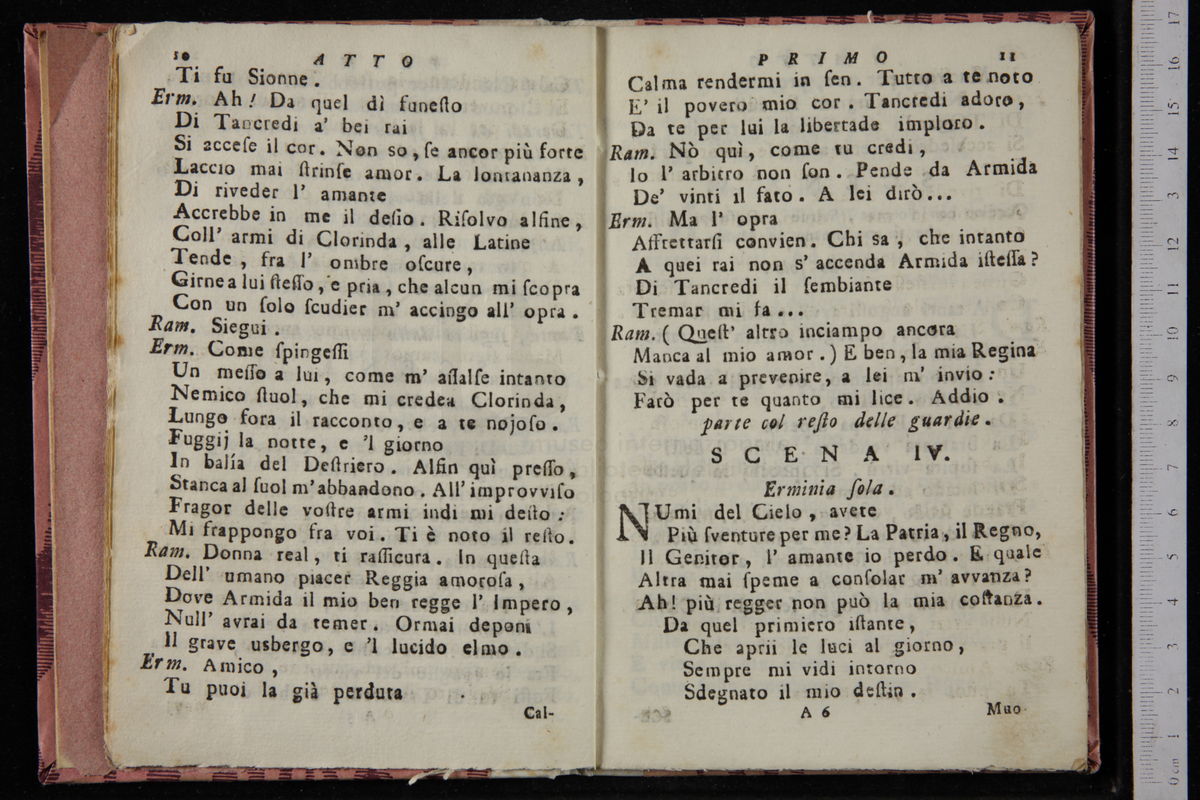 10 ATTO
Ti fu Sionne.
Erm. Ah! Da quel dì funeſto
Di Tancredi a' bei rai
Si acceſe il cor. Non so, ſe ancor più forte
Laccio mai ſtrinſe amor. La lontananza,
Di riveder l' amante
Accrebbe in me il deſio. Riſolvo alfine,
Coll' armi di Clorinda, alle Latine
Tende, fra l' ombre oſcure,
Girne a lui ſteſſo, e pria, che alcun mi ſcopra
Con un ſolo ſcudier m' accingo all' opra.
Ram. Siegui.
Erm. Come ſpingeſſi
Un meſſo a lui, come m' aſſalſe intanto
Nemico ſtuol, che mi credea Clorinda,
Lungo fora il racconto, e a te nojoſo.
Fuggij la notte, e 'l giorno
In balía del Deſtriero. Alfin quì preſſo,
Stanca al ſuol m'abbandono. All' improvviſo
Fragor delle voſtre armi indi mi deſto:
Mi frappongo fra voi. Ti è noto il reſto.
Ram. Donna real, ti raſſicura. In queſta
Dell' umano piacer Reggia amoroſa,
Dove Armida il mio ben regge l' Impero,
Null' avrai da temer. Ormai deponi
Il grave usbergo, e 'l lucido elmo.
Erm. Amico,
Tu puoi la già perduta
Cal-
PRIMO 11
Calma rendermi in ſen. Tutto a te noto
E' il povero mio cor. Tancredi adoro,
Da te per lui la libertade imploro.
Ram. Nò quì, come tu credi,
Io l' arbitro non ſon. Pende da Armida
De' vinti il fato. A lei dirò...
Erm. Ma l' opra
Affrettarſi convien. Chi sa, che intanto
A quei rai non s' accenda Armida iſteſſa?
Di Tancredi il ſembiante
Tremar mi fa...
Ram. (Queſt' altro inciampo ancora
Manca al mio amor.) E ben, la mia Regina
Si vada a prevenire, a lei m' invio:
Farò per te quanto mi lice. Addio.
parte col reſto delle guardie.
SCENA IV.
Erminia ſola.
NUmi del Cielo, avete
Più ſventure per me? La Patria, il Regno,
Il Genitor, l' amante io perdo. E quale
Altra mai ſpeme a conſolar m' avvanza?
Ah! più regger non può la mia coſtanza.
Da quel primiero iſtante,
Che aprii le luci al giorno,
Sempre mi vidi intorno
Sdegnato il mio deſtin.
A 6 Muo-